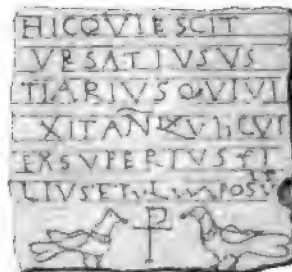 HICQVIESCIT
VRSATIVSVS
TIARIVSQVIVI
XITANLXVIICVI
EXSVPERIVSFI
LIVS